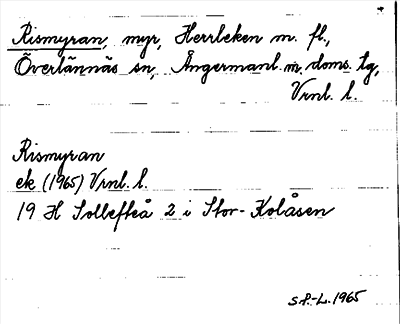 Rismyran, myr, Herrbeken m. fl.,
Överlännäs sn, Ångermanl. m. doms. tg,
Vrnl. l.
Rismyran
ek (1965) Vrnl. l.
19 H Sollefteå 2 i Stor-Kolåsen
S.P.-L. 1965